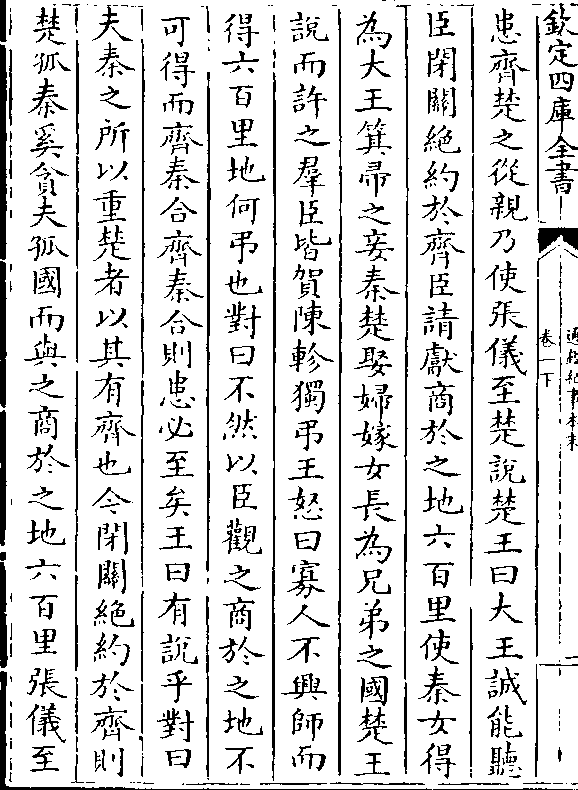 欽定四庫全書
通鑑紀事本末
卷一下
患齊楚之從親乃使張儀至楚說楚王曰大王誠能聽
臣閉關絶約於齊臣請獻商於之地六百里使秦女得
為大王箕帚之妾秦楚娶婦嫁女長為兄弟之國楚王
說而許之羣臣皆賀陳軫獨弔王怒曰寡人不興師而
得六百里地何弔也對曰不然以臣觀之商於之地不
可得而齊秦合齊秦合則患必至矣王曰有說乎對曰
夫秦之所以重楚者以其有齊也今閉關絶約於齊則
楚孤秦奚貪夫孤國而與之商於之地六百里張儀至